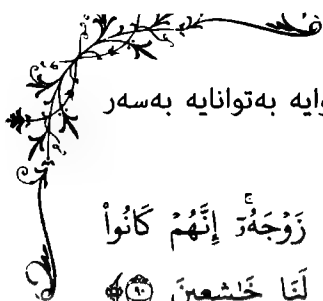 وایه بەتوانایە بەسەر
زَوْجَهُۥٓۚ إِنَّهُمْ كَانُوا۟
لَنَا خَـٰشِعِينَ ﴿٩٠﴾